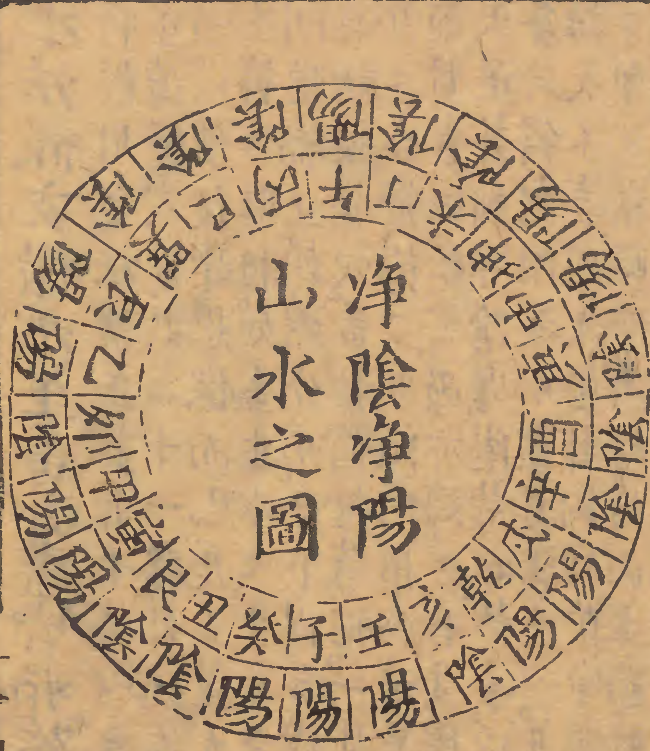 净陰净陽
山水之圖
子癸丑艮寅甲卯乙辰巽巳丙午丁未坤申庚酉辛戌乾亥壬
陽陽陰陰陽陽陰陽陽陰陰陰陽陰陰陽陽陰陰陰陽陽陰陽